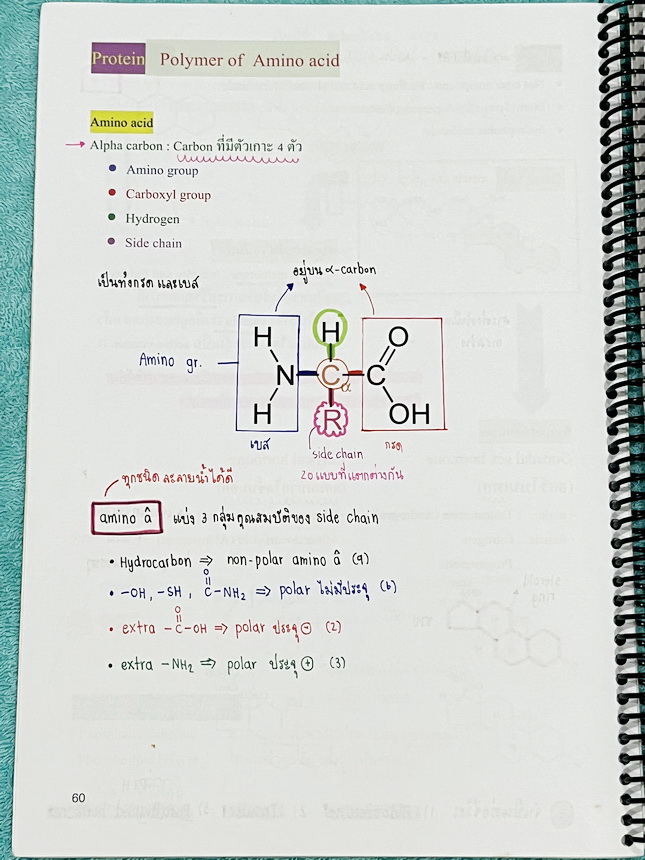 Protein Polymer of Amino acid
Amino acid
Alpha carbon : Carbon ที่มีตัวเกาะ 4 ตัว
Amino group
Carboxyl group
Hydrogen
Side chain
อยู่บน α-carbon
เป็นทั้งกรด และเบส
H H O
Amino gr.
N C α C
H R OH
เบส side chain กรด
20 แบบที่แตกต่างกัน
ทุกชนิด ละลายน้ำได้ดี
amino â แบ่ง 3 กลุ่มคุณสมบัติของ side chain
• Hydrocarbon ⇒ non-polar amino â (9)
O
• -OH, -SH, C-NH₂ ⇒ polar ไม่มีประจุ (6)
O
• extra -C-OH ⇒ polar ประจุ ⊖ (2)
• extra -NH₂ ⇒ polar ประจุ ⊕ (3)
60